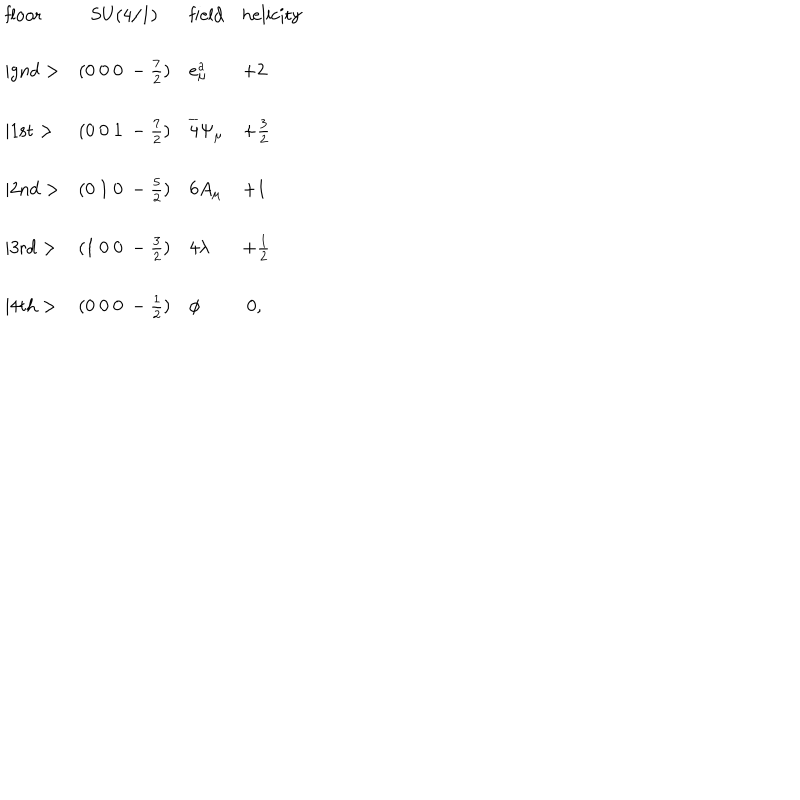 floor SU(4/1) field helicity
|gnd > (0 0 0 − 7/2) e^a_μ +2
|1st > (0 0 1 − 7/2) 4̅Ψ_μ +3/2
|2nd > (0 1 0 − 5/2) 6A_μ +1
|3rd > (1 0 0 − 3/2) 4λ +1/2
|4th > (0 0 0 − 1/2) ϕ 0,